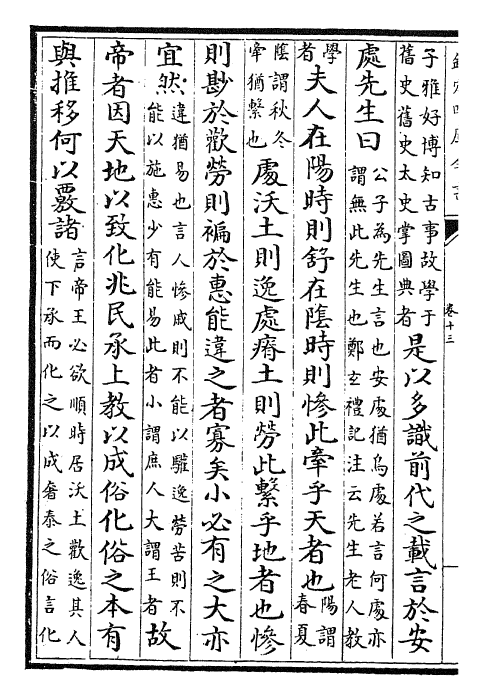 卷十三
子雅好博知古事故學于
舊史舊史太史掌圖典者
是以多識前代之載言於安
處先生曰
公子為先生言也安處猶烏處若言何處亦
謂無此先生也鄭玄禮記注云先生老人教
學
者
夫人在陽時則舒在陰時則慘此牽乎天者也
陽謂
春夏
陰謂秋冬
牽猶繫也
處沃土則逸處瘠土則勞此繫乎地者也慘
則尠於歡勞則褊於惠能違之者寡矣小必有之大亦
宜然
違猶易也言人慘戚則不能以驩逸勞苦則不
能以施惠少有能易此者小謂庶人大謂王者
故
帝者因天地以致化兆民承上教以成俗化俗之本有
與推移何以覈諸
言帝王必欲順時居沃土歡逸其人
使下承而化之以成奢泰之俗言化